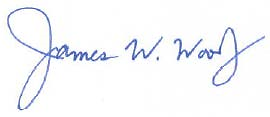 James W. Wood